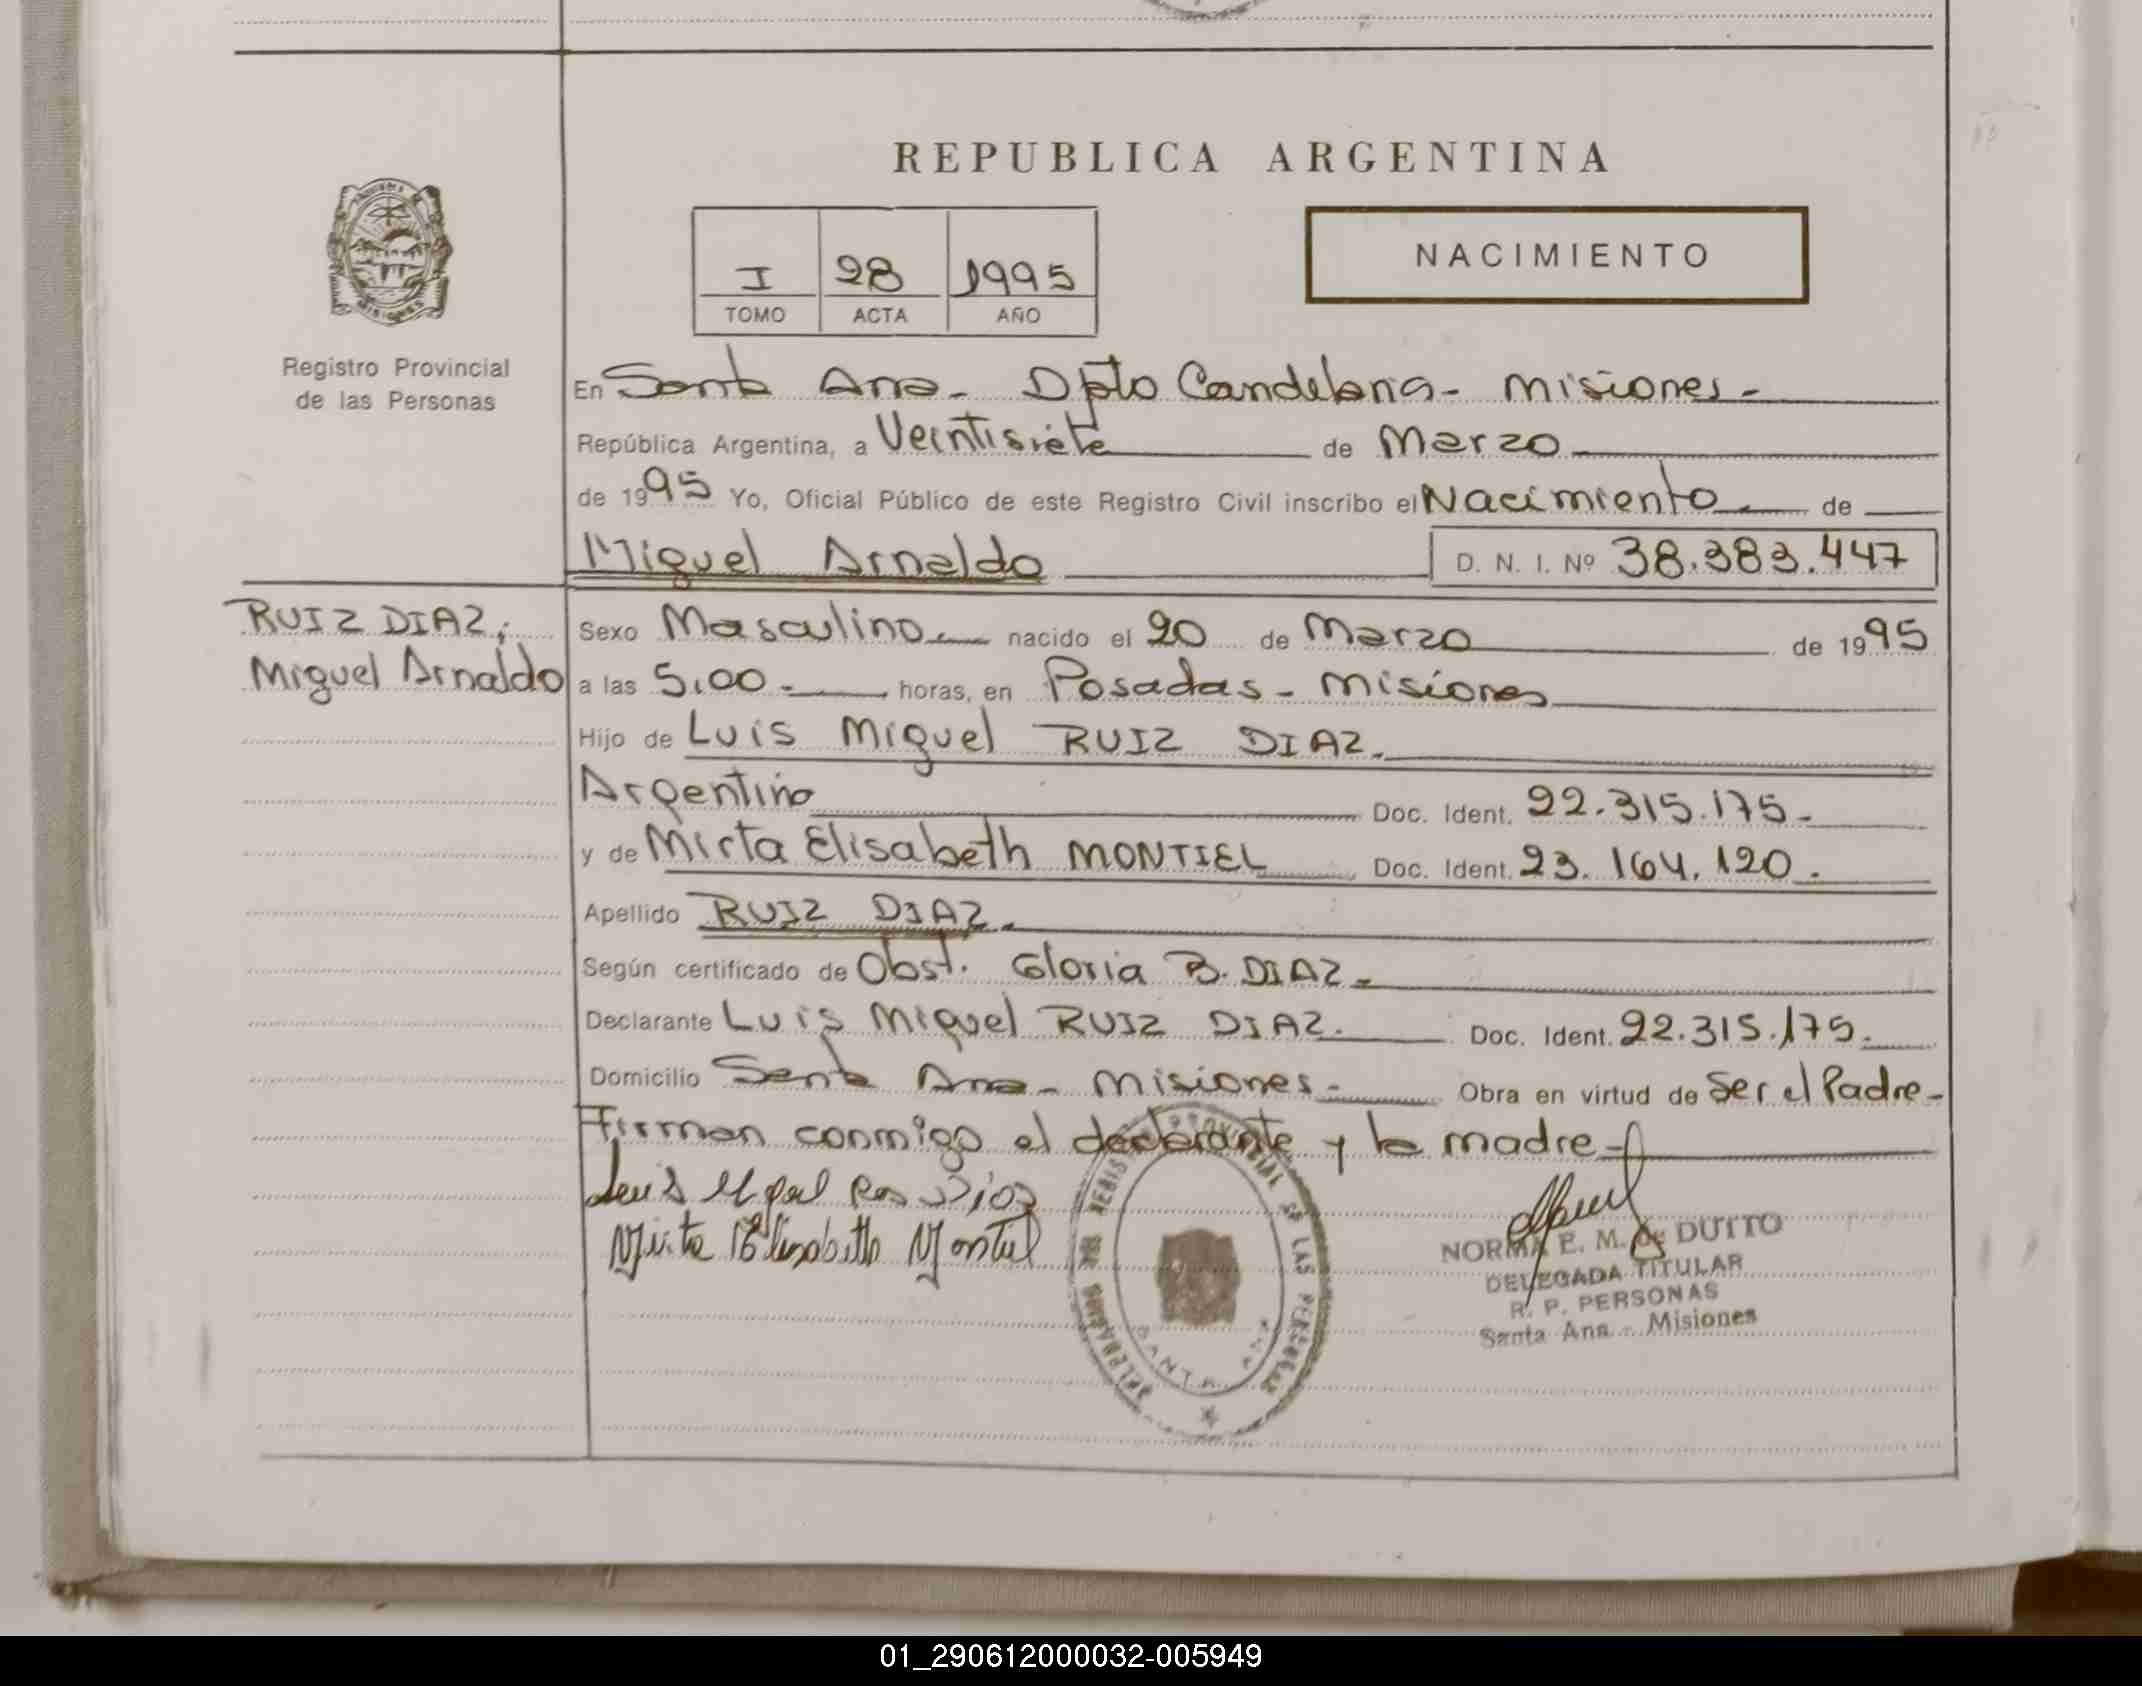 REPUBLICA ARGENTINA
I 28 1995
TOMO ACTA AÑO
NACIMIENTO
Registro Provincial
de las Personas
En Santa Ana - Dpto Candelaria - Misiones -
República Argentina, a Veintisiete de Marzo
de 1995 Yo, Oficial Público de este Registro Civil inscribo el Nacimiento de
Miguel Arnaldo D. N. I. Nº 38.383.447
RUIZ DIAZ,
Miguel Arnaldo
Sexo Masculino nacido el 20 de Marzo de 1995
a las 5,00 - horas, en Posadas - Misiones
Hijo de Luis Miguel RUIZ DIAZ.
Argentino Doc. Ident. 22.315.175 -
y de Mirta Elisabeth MONTIEL Doc. Ident. 23.164.120.
Apellido RUIZ DIAZ -
Según certificado de Obst. Gloria B. DIAZ -
Declarante Luis Miguel RUIZ DIAZ. Doc. Ident. 22.315.175.
Domicilio Santa Ana - Misiones - Obra en virtud de Ser el Padre -
Firman conmigo el declarante y la madre -
Mirta Elisabeth Montiel
REGISTRO PROVINCIAL DE LAS PERSONAS
SANTA ANA
NORMA E. M. de DUTTO
DELEGADA TITULAR
R. P. PERSONAS
Santa Ana - Misiones
01_290612000032-005949